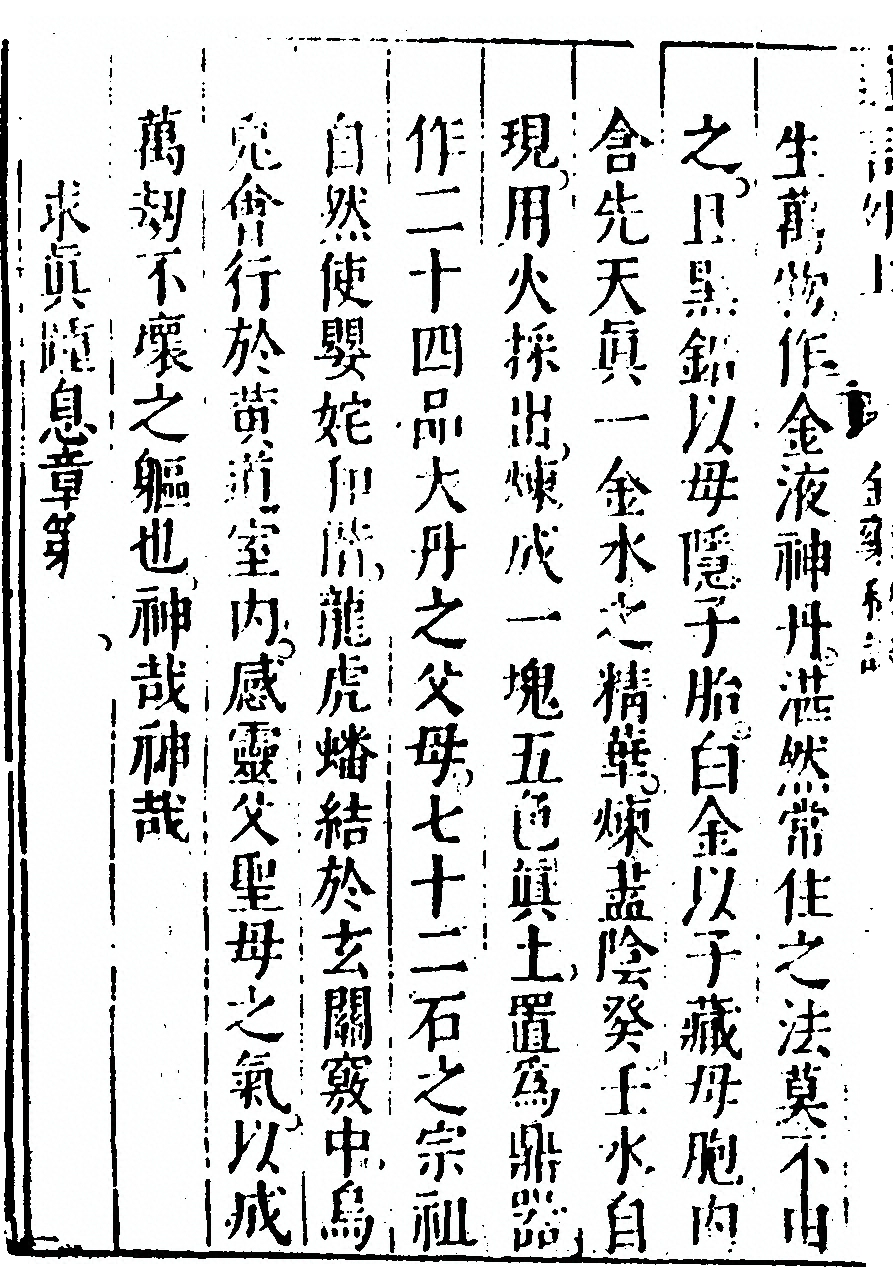 生萬物作金液神丹湛然常住之法莫不由
之且黑鉛以母隱子胎白金以子藏母胞內
含先天眞一金水之精華煉盡陰癸壬水自
現用火採出煉成一塊五色眞土置爲鼎器
作二十四品大丹之父母七十二石之宗祖
自然使嬰姹和諧龍虎蟠結於玄關竅中烏
兔會行於黃道室內感靈父聖母之氣以成
萬刼不壞之軀也神哉神哉
求眞踵息章第